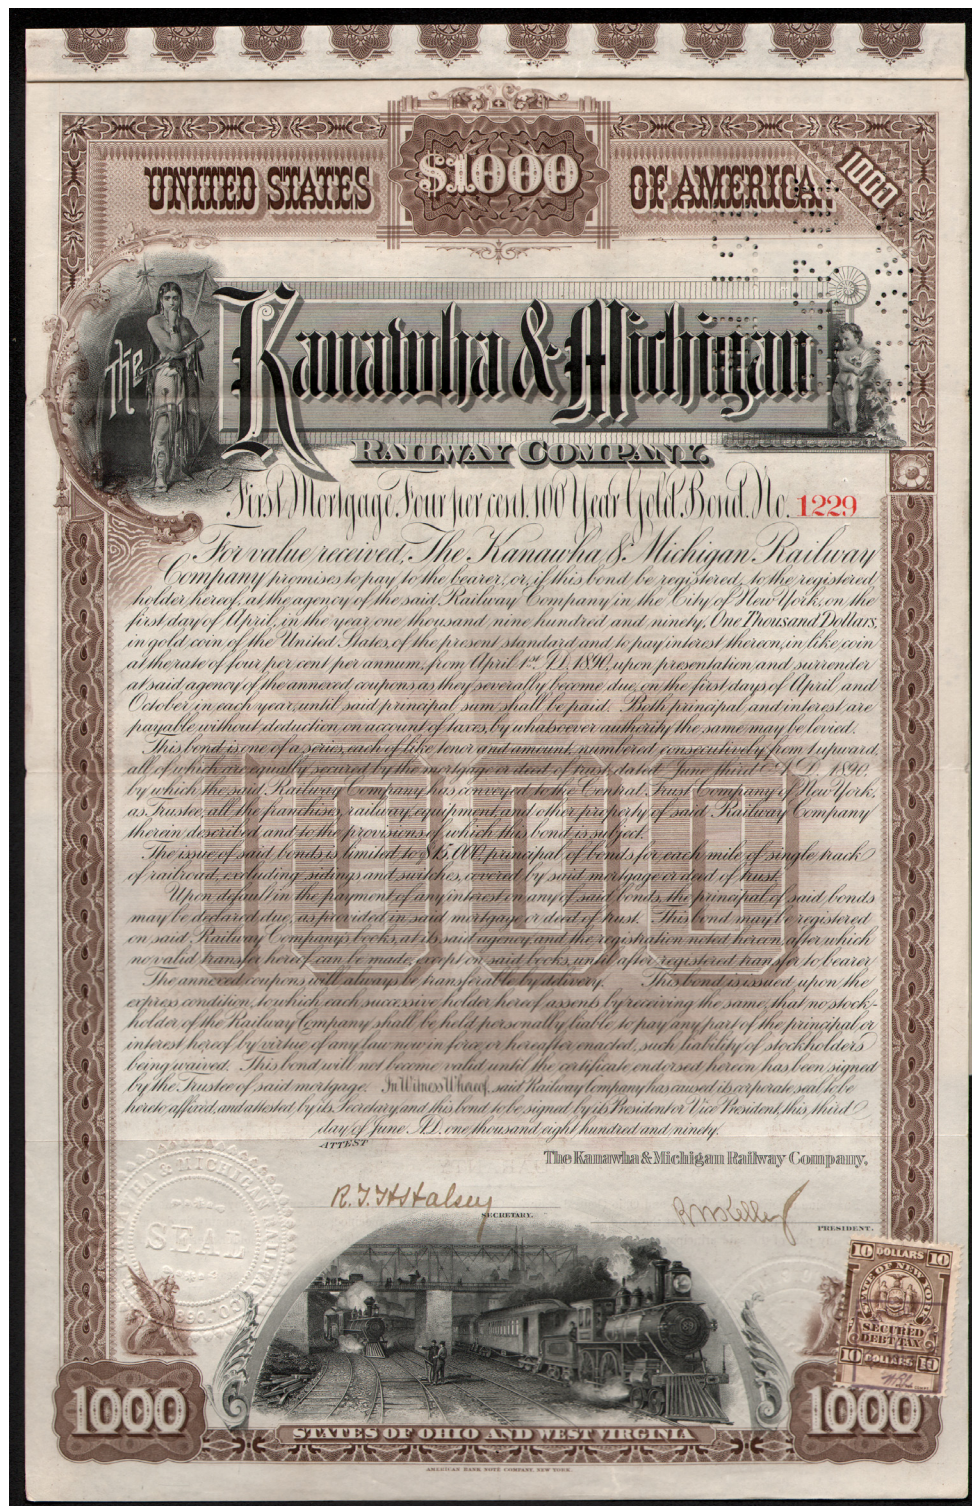 UNITED STATES $1000 OF AMERICA 1000
The Kanawha & Michigan
RAILWAY COMPANY.
First Mortgage Four per cent. 100 Year Gold Bond. No. 1229
For value received, The Kanawha & Michigan Railway
Company promises to pay to the bearer, or, if this bond be registered, to the registered
holder hereof, at the agency of the said Railway Company in the City of New York, on the
first day of April, in the year one thousand nine hundred and ninety, One Thousand Dollars,
in gold coin of the United States, of the present standard and to pay interest thereon, in like coin
at the rate of four per cent per annum, from April 1st A.D. 1890, upon presentation and surrender
at said agency of the annexed coupons as they severally become due, on the first days of April and
October in each year, until said principal sum shall be paid. Both principal and interest are
payable without deduction on account of taxes, by whatsoever authority the same may be levied.
This bond is one of a series, each of like tenor and amount, numbered consecutively from 1 upward,
all of which are equally secured by the mortgage or deed of trust, dated June third A.D. 1890.
by which the said Railway Company has conveyed to the Central Trust Company of New York,
as Trustee, all the franchises, railway, equipment, and other property of said Railway Company
therein described, and to the provisions of which this bond is subject.
The issue of said bonds is limited to $15,000, principal of bonds for each mile of single track
of railroad, excluding sidings and switches, covered by said mortgage or deed of trust.
Upon default in the payment of any interest on any of said bonds, the principal of said bonds
may be declared due, as provided in said mortgage or deed of trust. This bond may be registered
on said Railway Company's books, at its said agency and the registration noted hereon, after which
no valid transfer hereof can be made, except on said books, until after registered transfer to bearer
The annexed coupons will always be transferable by delivery. This bond is issued upon the
express condition, to which each successive holder hereof assents by receiving the same, that no stock-
holder of the Railway Company shall be held personally liable to pay any part of the principal or
interest hereof by virtue of any law now in force or hereafter enacted, such liability of stockholders
being waived. This bond will not become valid until the certificate endorsed hereon has been signed
by the Trustee of said mortgage. In Witness Whereof, said Railway Company has caused its corporate seal to be
hereto affixed, and attested by its Secretary and this bond to be signed by its President or Vice President, this third
day of June A.D. one thousand eight hundred and ninety.
ATTEST
The Kanawha & Michigan Railway Company.
R.T.H. Halsey
SECRETARY.
PRESIDENT.
SEAL
10 DOLLARS 10
STATE OF NEW YORK
SECURED
DEBT TAX
10 DOLLARS 10
1000 1000
STATES OF OHIO AND WEST VIRGINIA
AMERICAN BANK NOTE COMPANY, NEW YORK.